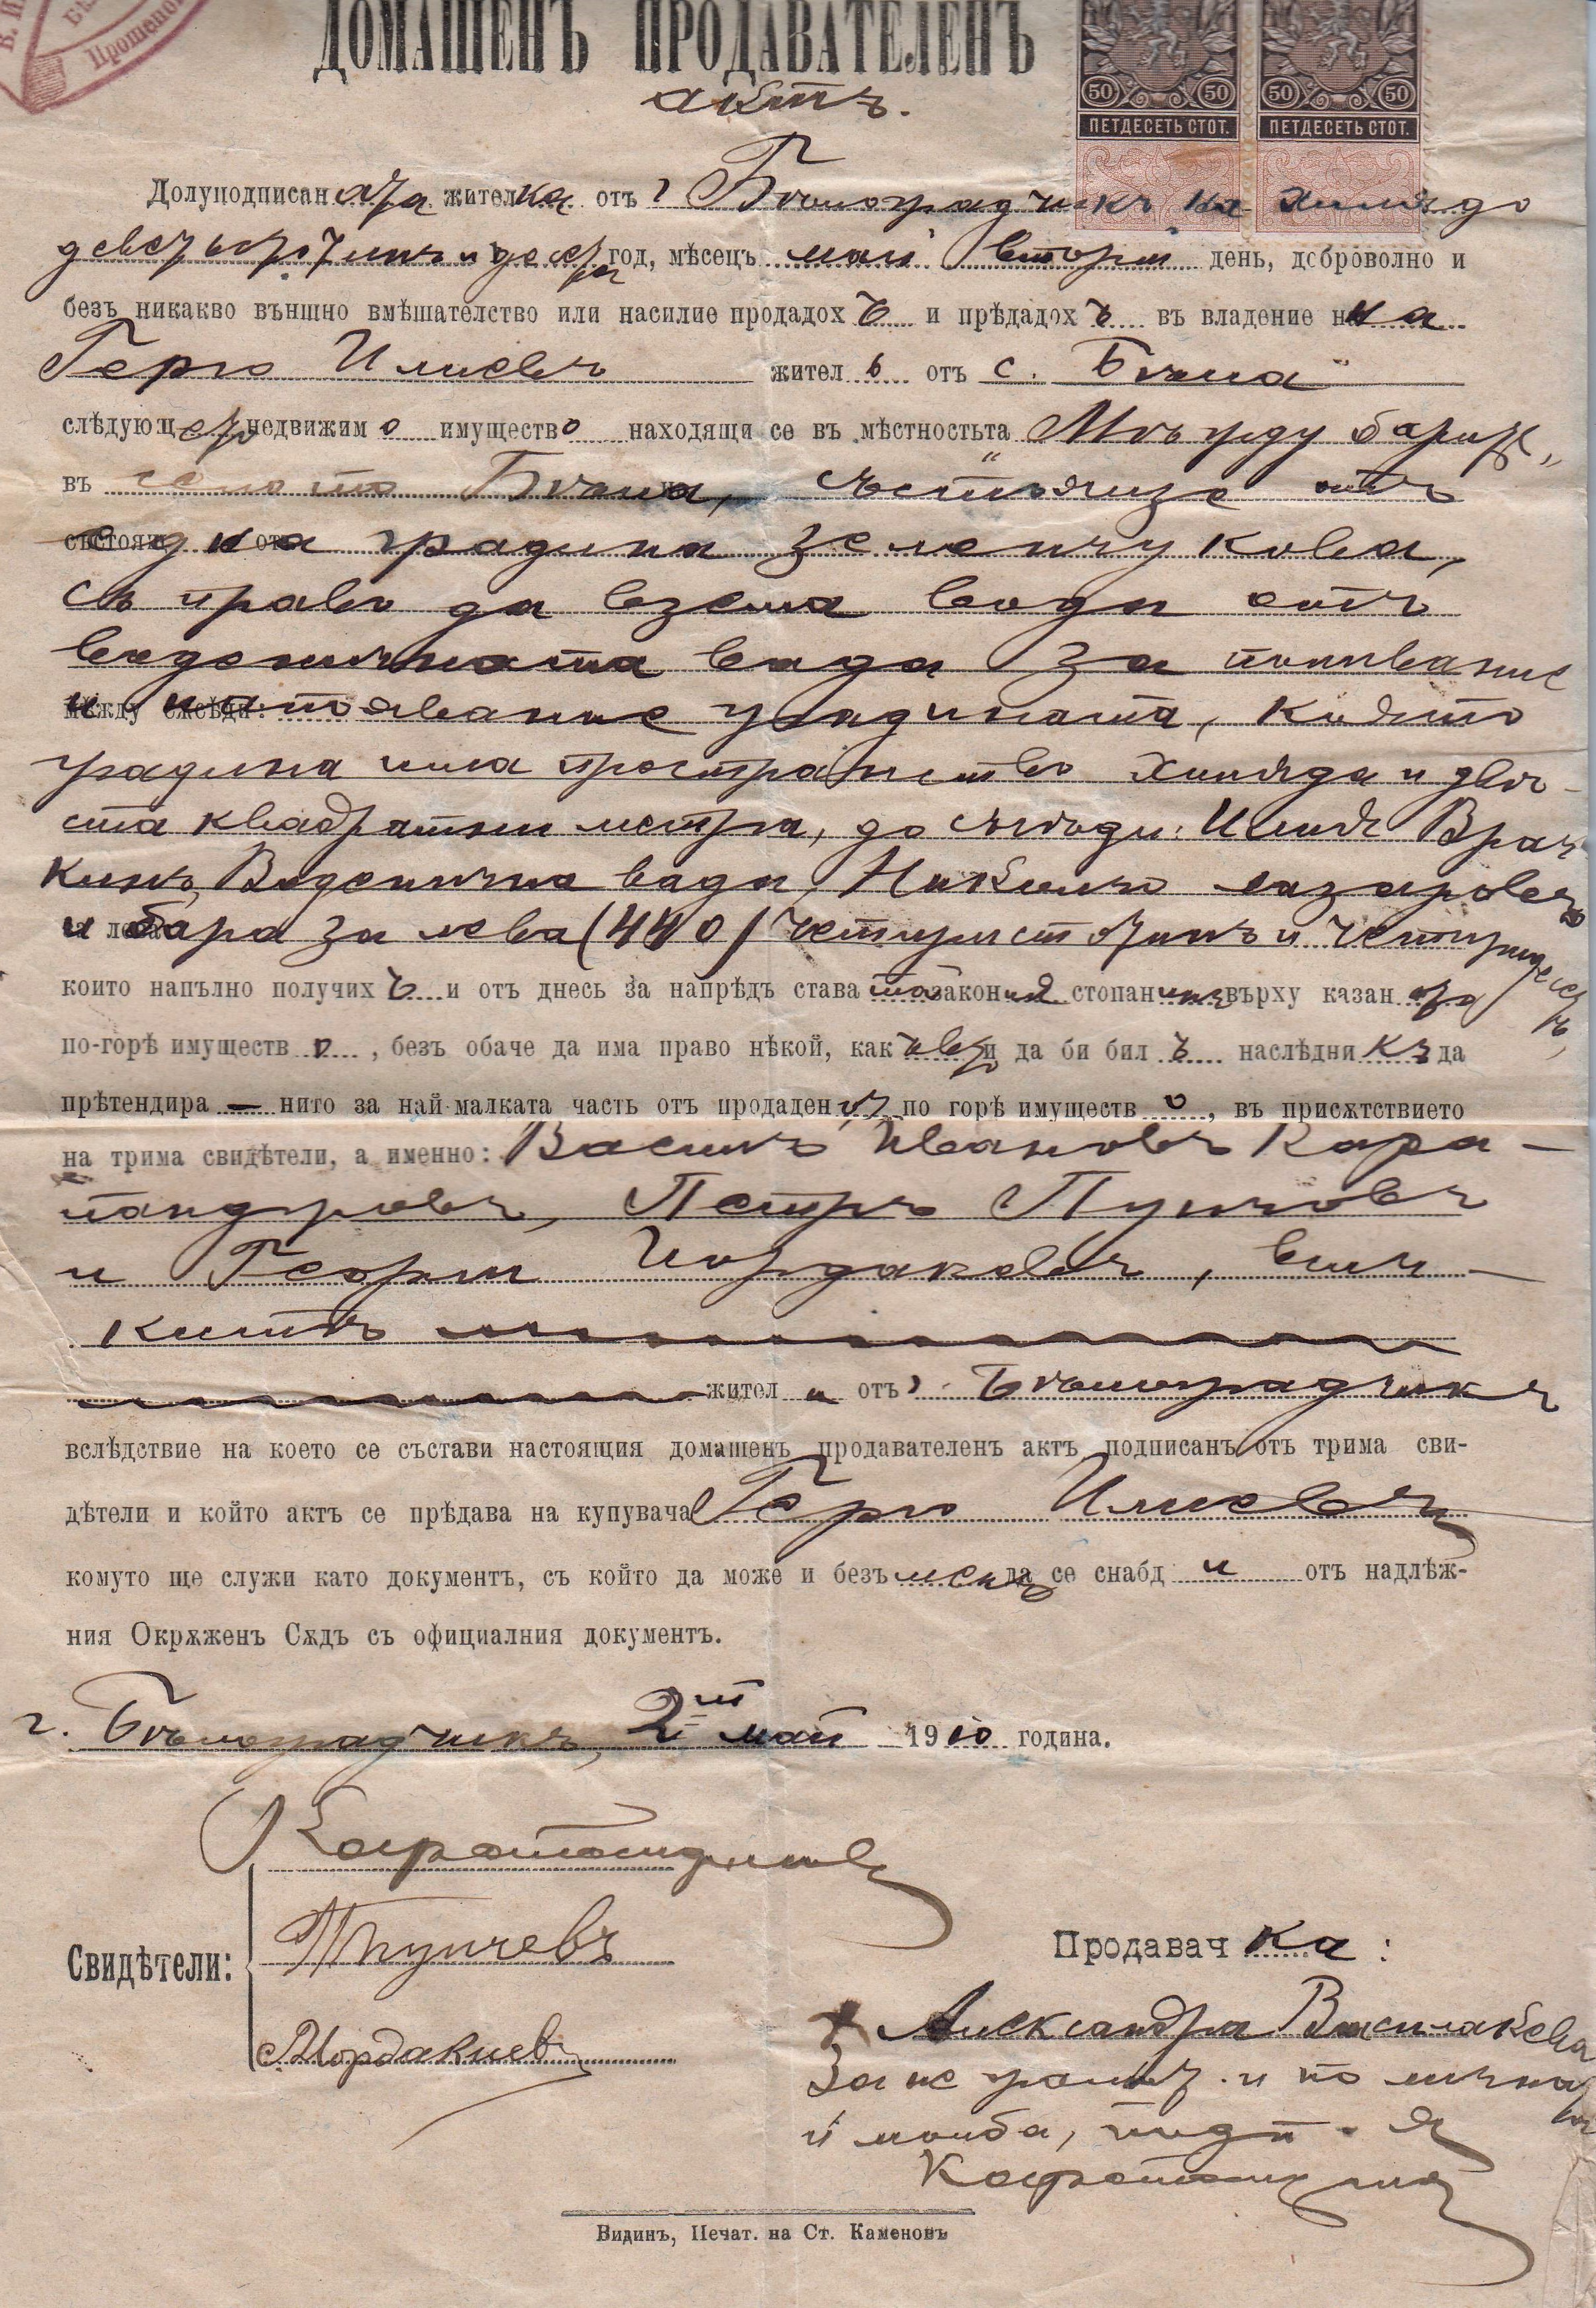 Прошено
ДОМАШЕНЪ ПРОДАВАТЕЛЕНЪ
актъ.
50 50 50 50
ПЕТДЕСЕТЬ СТОТ. ПЕТДЕСЕТЬ СТОТ.
Долуподписаната жителка отъ г. Бѣлоградчикъ на хилядо
деветьстотинъ и десета год, мѣсецъ май втори день, доброволно и
безъ никакво външно вмѣшателство или насилие продадохъ и прѣдадохъ въ владение на
Герго Илиевъ жителъ отъ с. Бѣла
слѣдующето недвижимо имущество находящи се въ мѣстностьта „Между бари“,
въ селото Бѣла, състояще отъ
една градина зеленчукова,
съ право да взема вода отъ
воденичната вада за поливание
и напояване градината, която
градина има пространство хиляда и двѣ-
ста квадратни метра, до съседи: Илия Врач
кинъ, Воденична вада, Николчо Лазаровъ
и бара за лева (440) четиристотинъ и четиридесеть,
които напълно получихъ и отъ днесь за напрѣдъ става той законния стопанинъ върху казаното
по-горѣ имущество, безъ обаче да има право нѣкой, какъвто и да би билъ наслѣдникъ да
прѣтендира — нито за най-малката часть отъ продаденото по горѣ имущество, въ присѫтствието
на трима свидѣтели, а именно: Василъ Ивановъ Кара-
пандуровъ, Петръ Пунчовъ
и Георги Иордакиевъ, всич-
китѣ
жители отъ г. Бѣлоградчикъ
вслѣдствие на което се състави настоящия домашенъ продавателенъ актъ подписанъ отъ трима сви-
дѣтели и който актъ се прѣдава на купувача Герго Илиевъ
комуто ще служи като документъ, съ който да може и безъ менъ да се снабди отъ надлѣж-
ния Окрѫженъ Сѫдъ съ официалния документъ.
г. Бѣлоградчикъ, 2ий май 1910 година.
Свидѣтели:
ППунчевъ
Иордакиевъ
Продавачка:
+ Александра Василакева
За неграмот. и по личната
ѝ молба, подп. я
Видинъ, Печат. на Ст. Каменовъ